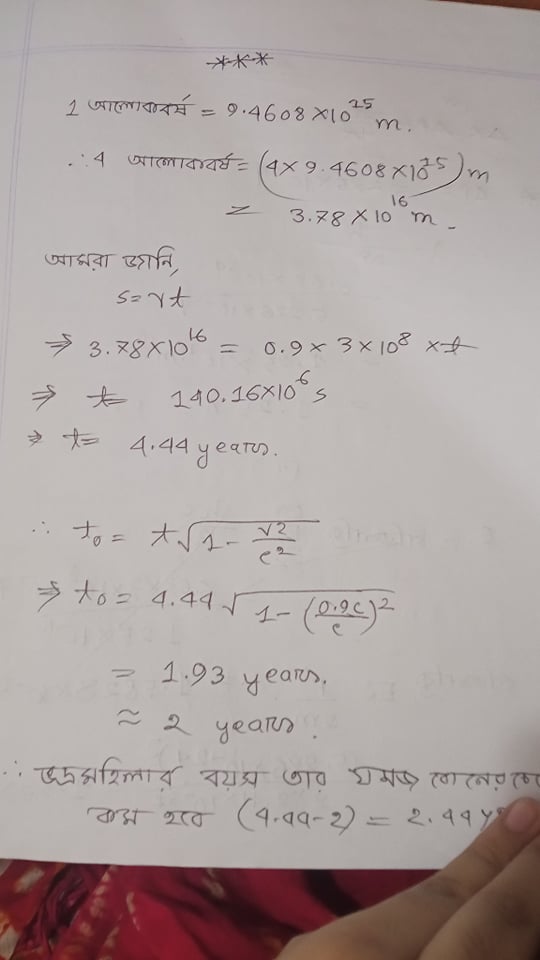 ***
1 আলোকবর্ষ = 9.4608×10^25 m.
∴ 4 আলোকবর্ষ = (4×9.4608×10^15) m
= 3.78×10^16 m.
আমরা জানি,
s = vt
⇒ 3.78×10^16 = 0.9×3×10^8 × t
⇒ t = 140.16×10^6 s
⇒ t = 4.44 years.
∴ t₀ = t√(1 - v²/c²)
⇒ t₀ = 4.44√(1 - (0.9c/c)²)
= 1.93 years.
≈ 2 years.
∴ ভদ্রমহিলার বয়স তার যমজ বোনের
কম হবে (4.44-2) = 2.44